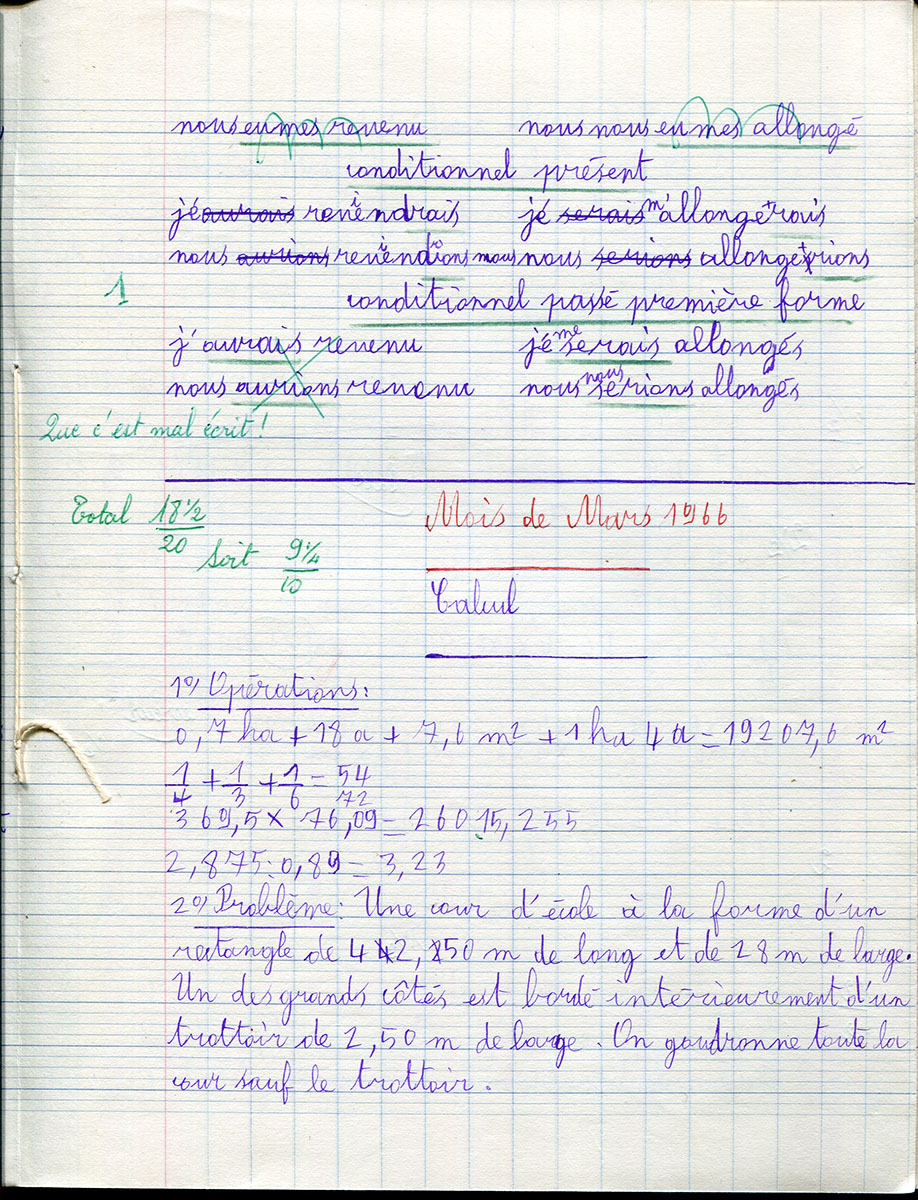 nous eumes revenu nous nous eumes allongé
conditionnel présent
jé aurais reviendrais jé serais m'allongerais
nous aurions reviendrions nous nous serions allongerions
1
conditionnel passé première forme
j'aurais revenu jé me serais allongés
nous aurions revenu nous nous serions allongés
Que c'est mal écrit !
Total 18½/20
Mois de Mars 1966
Soit 9¼/10
Calcul
1°) Opérations :
0,7 ha + 18 a + 7,6 m² + 1 ha 4 a = 19207,6 m²
1/4 + 1/3 + 1/6 = 54/72
369,5 × 76,09 = 26015,255
2,875 : 0,89 = 3,23
2°) Problème : Une cour d'école à la forme d'un
rectangle de 42,50 m de long et de 28 m de large.
Un des grands côtés est bordé intérieurement d'un
trottoir de 2,50 m de large. On goudronne toute la
cour sauf le trottoir.